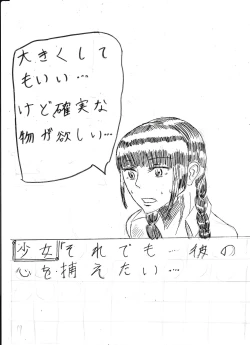 大きくして
もいい…
けど確実な
物が欲しい…
少女「それでも…彼の
心を捕えたい…